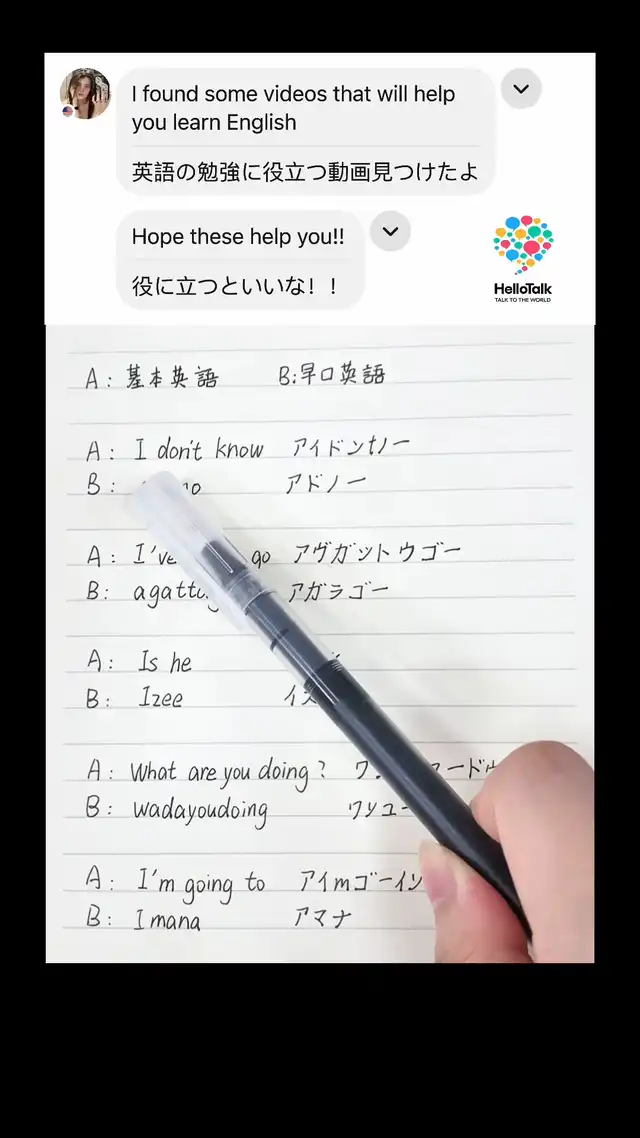 I found some videos that will help
you learn English
英語の勉強に役立つ動画見つけたよ
Hope these help you!!
役に立つといいな！！
HelloTalk
TALK TO THE WORLD
A: 基本英語 B:早口英語
A: I don't know アイドンtノー
B: アドノー
A: I've go アヴガットゥゴー
B: アガラゴー
A: Is he
B: Izee
A: What are you doing?
B: wadayoudoing ワリユー
A: I'm going to アイmゴーイン
B: Imana アマナ